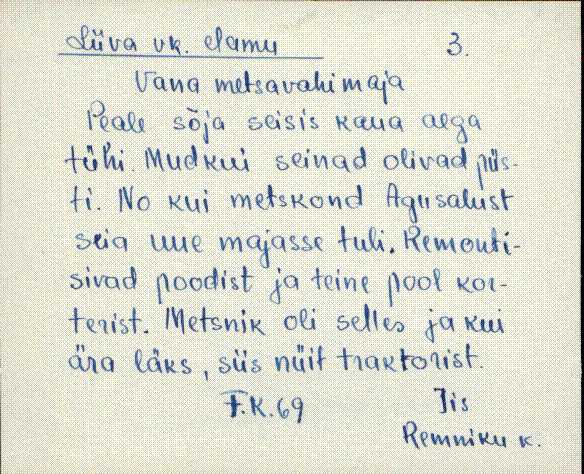 Liiva vk. elamu 3.
Vana metsavahi maja
Peale sõja seisis kaua aega
tühi. Mudkui seinad olivad püs-
ti. No kui metskond Agusalust
seia uue majasse tuli. Remonti-
sivad poodist ja teine pool kor-
terist. Metsnik oli selles ja kui
ära läks, siis nüit traktorist.
F.K. 69 Iis
Remniku k.